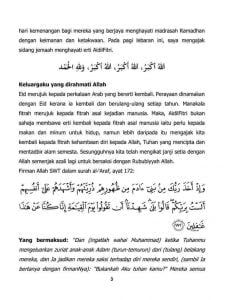 hari kemenangan bagi mereka yang berjaya menghayati madrasah Ramadhan
dengan keimanan dan ketakwaan. Pada pagi lebaran ini, saya mengajak
sidang jemaah menghayati erti Aidilfitri.
اللهُ أَكْبَرُ، اللهُ أَكْبَرُ، اللهُ أَكْبَرُ، وَلِلّٰهِ الْحَمْدُ
Keluargaku yang dirahmati Allah
Eid merujuk kepada perkataan Arab yang bererti kembali. Perayaan dinamakan
dengan Eid kerana ia kembali dan berulang-ulang setiap tahun. Manakala
fitrah merujuk kepada fitrah asal kejadian manusia. Maka, Aidilfitri bukan
sahaja membawa erti kembali kepada fitrah asal manusia yang perlu kepada
makan dan minum untuk hidup, namun lebih daripada itu mengajak kita
kembali kepada fitrah kehambaan diri kepada Allah, Tuhan yang mencipta dan
mentadbir alam semesta. Sesungguhnya kita telah mengikat janji setia dengan
Allah semenjak azali lagi untuk bersaksi dengan Rububiyyah Allah.
Firman Allah SWT dalam surah al-'Araf, ayat 172:
وَإِذْ أَخَذَ رَبُّكَ مِنْ بَنِي آدَمَ مِنْ ظُهُورِهِمْ ذُرِّيَّتَهُمْ وَأَشْهَدَهُمْ عَلَىٰ أَنْفُسِهِمْ
أَلَسْتُ بِرَبِّكُمْ قَالُوا بَلَىٰ شَهِدْنَا أَنْ تَقُولُوا يَوْمَ الْقِيَامَةِ إِنَّا كُنَّا عَنْ هَٰذَا
غَافِلِينَ ﴿١٧٢﴾
Yang bermaksud: "Dan (ingatlah wahai Muhammad) ketika Tuhanmu
mengeluarkan zuriat anak-anak Adam (turun-temurun) dari (tulang) belakang
mereka, dan Ia jadikan mereka saksi terhadap diri mereka sendiri, (sambil Ia
bertanya dengan firmanNya): "Bukankah Aku tuhan kamu?" Mereka semua
3